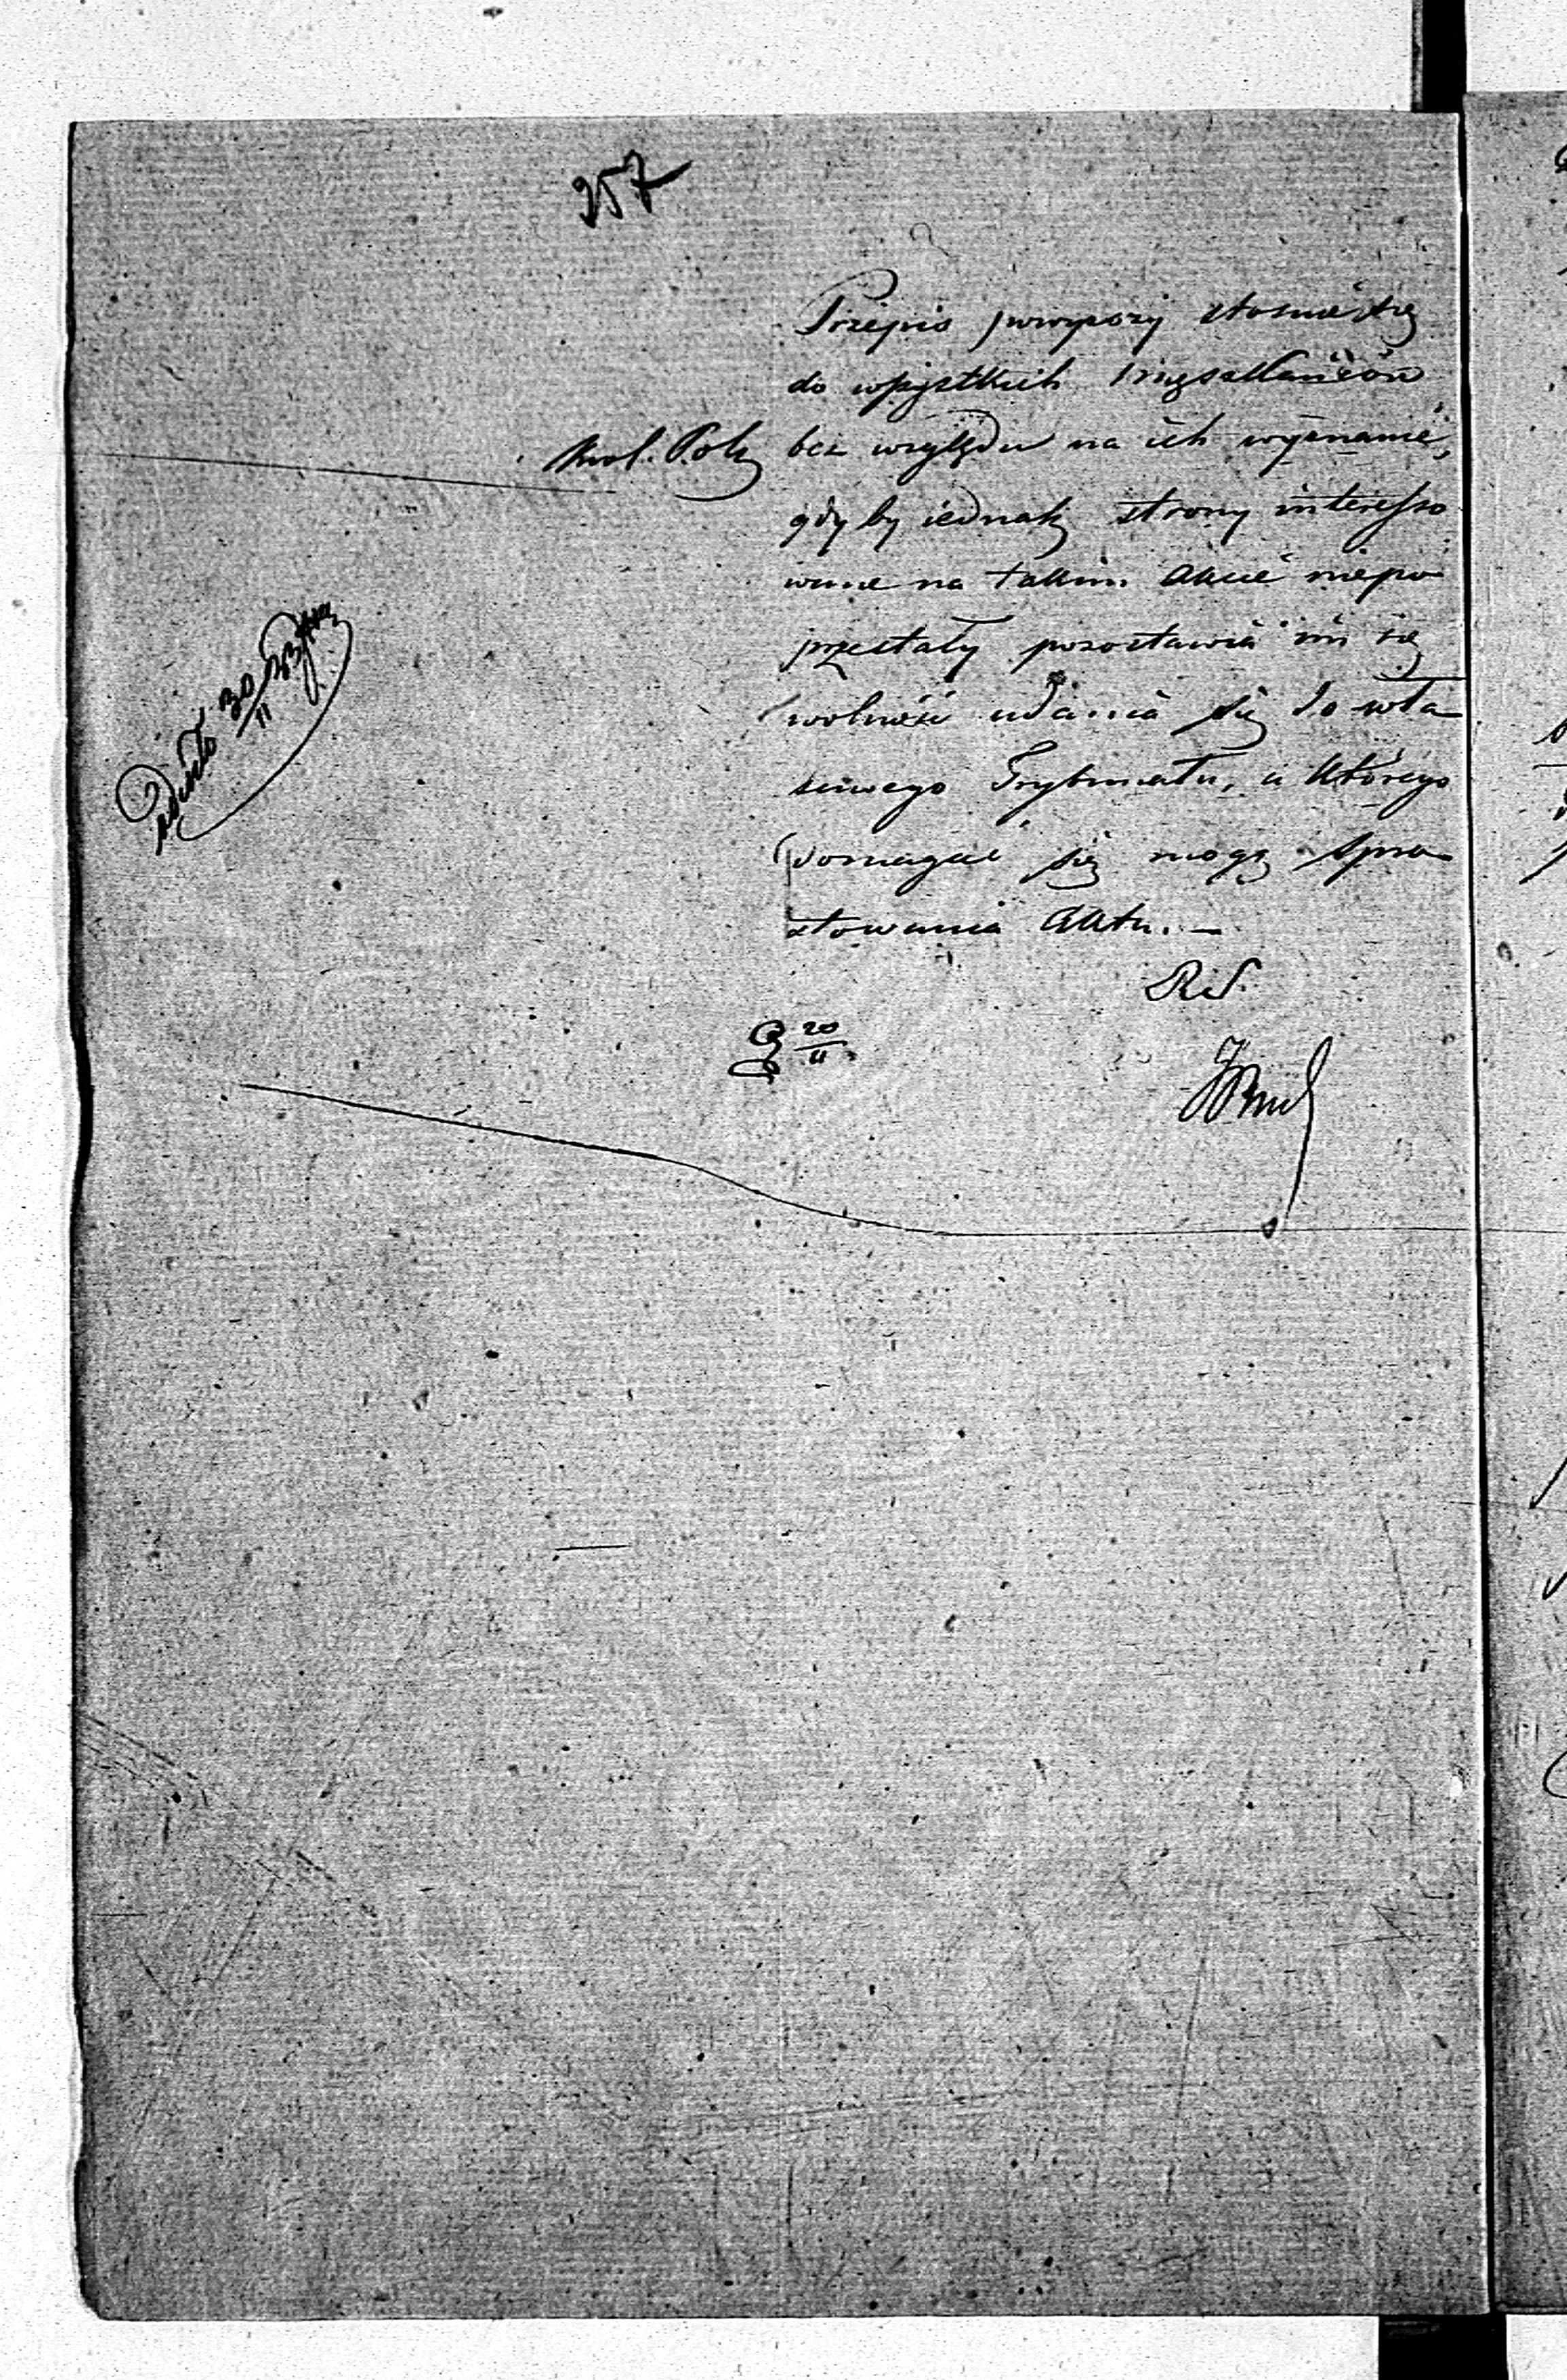 257
Przepis powyższy stosuie się
do wszystkich mięszkańców
Krol. Pols
bez względu na ich wyznanie,
gdyby iednak strony interesso
wane na takim Akcie niepo
przestały pozostawia im się
wolność udania się do wła
sciwego Trybunału, u którego
domagać się mogą spro
stowania Aktu. —
20/11
30/11